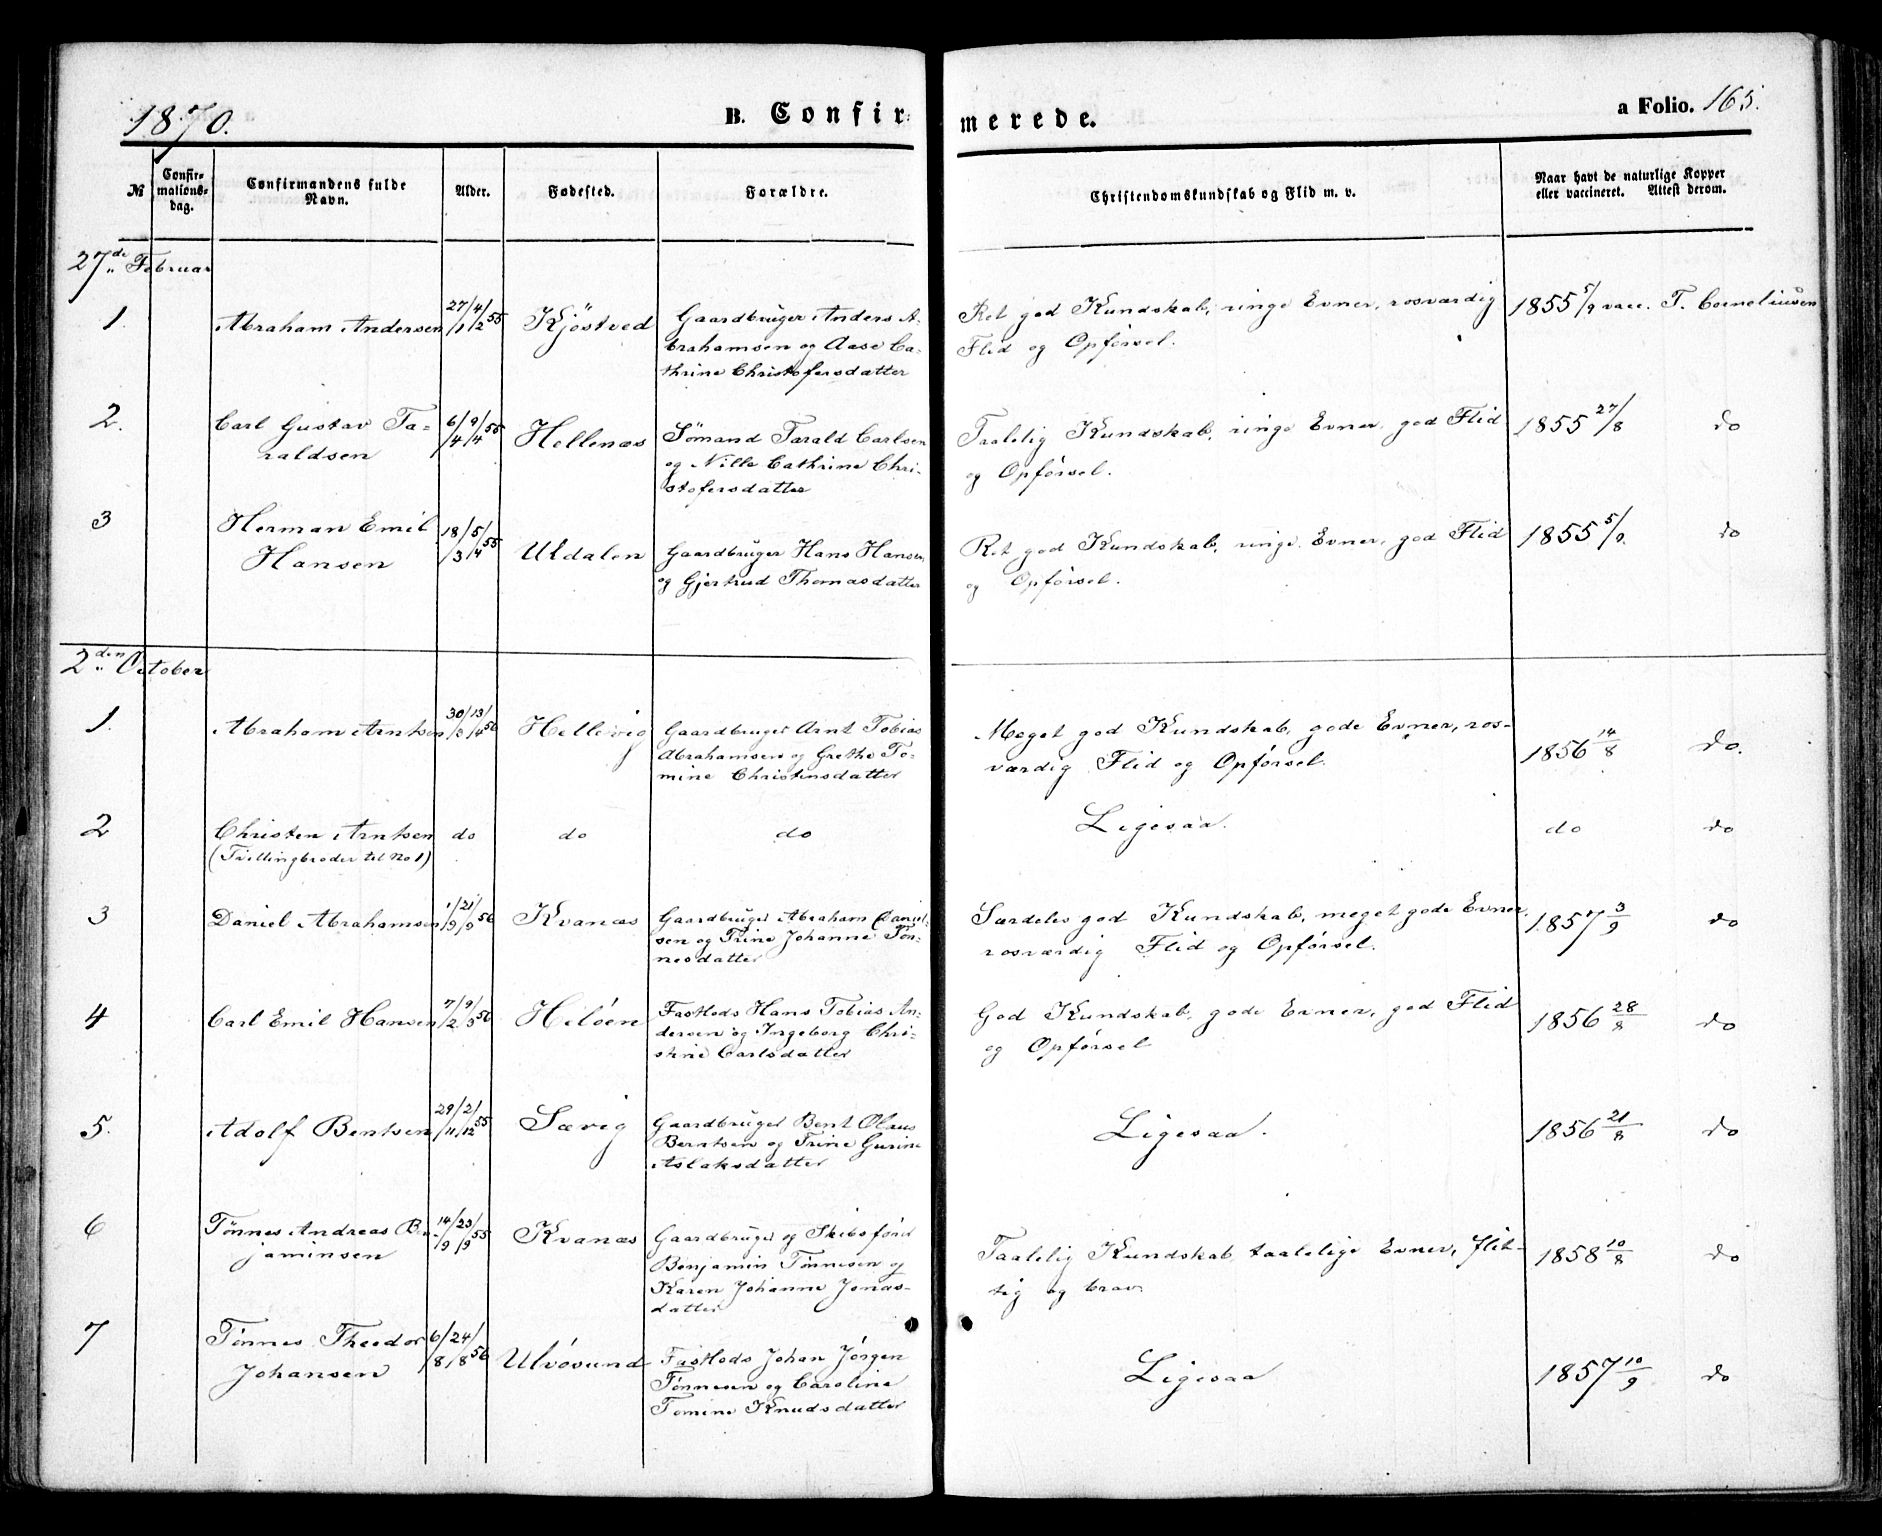 1870.
B. Confirmerede.
a Folio. 165.
№
Confirmationsdag.
Confirmandens fulde Navn.
Alder.
Fødested.
Forældre.
Christendomskundskab og Flid m. v.
Naar havt de naturlige Kopper eller vaccineret. Attest derom.
27de Februar
1. Abraham Andersen 27/1 4/2 55 Kjöstved Gaardbruger Anders A- Ret god Kundskab, ringe Evner, rosværdig 1855 5/9 vacc. T. Corneliusen
brahamsen og Aase Ca- Flid og Opførsel.
thrine Christofersdatter
2. Carl Gustav Ta- 6/4 9/4 55 Hellenæs Sömand Tarald Carlsen Taalelig Kundskab, ringe Evner, god Flid 1855 27/8 do
raldsen og Nille Cathrine Chri- og Opførsel.
stofersdatter
3 Herman Emil 18/3 5/4 55 Uldalen Gaardbruger Hans Hansen Ret god Kundskab, ringe Evner, god Flid 1855 5/9. do
Hansen og Gjertrud Thomasdatter og Opførsel.
2den October
1. Abraham Arntsen 30/3 13/4 56 Hellevig Gaardbruger Arnt Tobias Meget god Kundskab, gode Evner, ros- 1856 14/8 do.
Abrahamsen og Grethe To- værdig Flid og Opførsel.
mine Christinsdatter
2 Christen Arntsen do do do Ligesaa. do do
(Tvillingbroder til No 1)
3 Daniel Abrahamsen 1/9 21/9 56 Kvanæs Gaardbruger Abraham Daniel- Særdeles god Kundskab, meget gode Evner, 1857 3/9 do
sen og Trine Johanne Tøn- rosværdig Flid og Opførsel.
nesdatter
4 Carl Emil Hansen 7/2 9/3 56 Heløen Fastlods Hans Tobias An- God Kundskab, gode Evner, god Flid 1856 28/8 do
dersen og Ingeborg Chri- og Opførsel
stine Carlsdatter
5. Adolf Bentsen 29/11 21/12 55 Sævig Gaardbruger Bent Olaus Ligesaa. 1856 21/8 do
Berntsen og Trine Gurine
Aslaksdatter
6 Tønnes Andreas Ben- 14/9 23/9 55 Kvanæs Gaardbruger og Skibsfører Taalelig Kundskab, taalelige Evner, flit- 1858 10/8 do
jaminsen Benjamin Tønnesen og tig og brav.
Karen Johanne Jonas-
datter
7 Tønnes Theodor 6/8 24/8 56 Ulvøsund Fastlods Johan Jørgen Ligesaa 1857 10/9 do
Johansen Tønnesen og Caroline
Tomine Knudsdatter